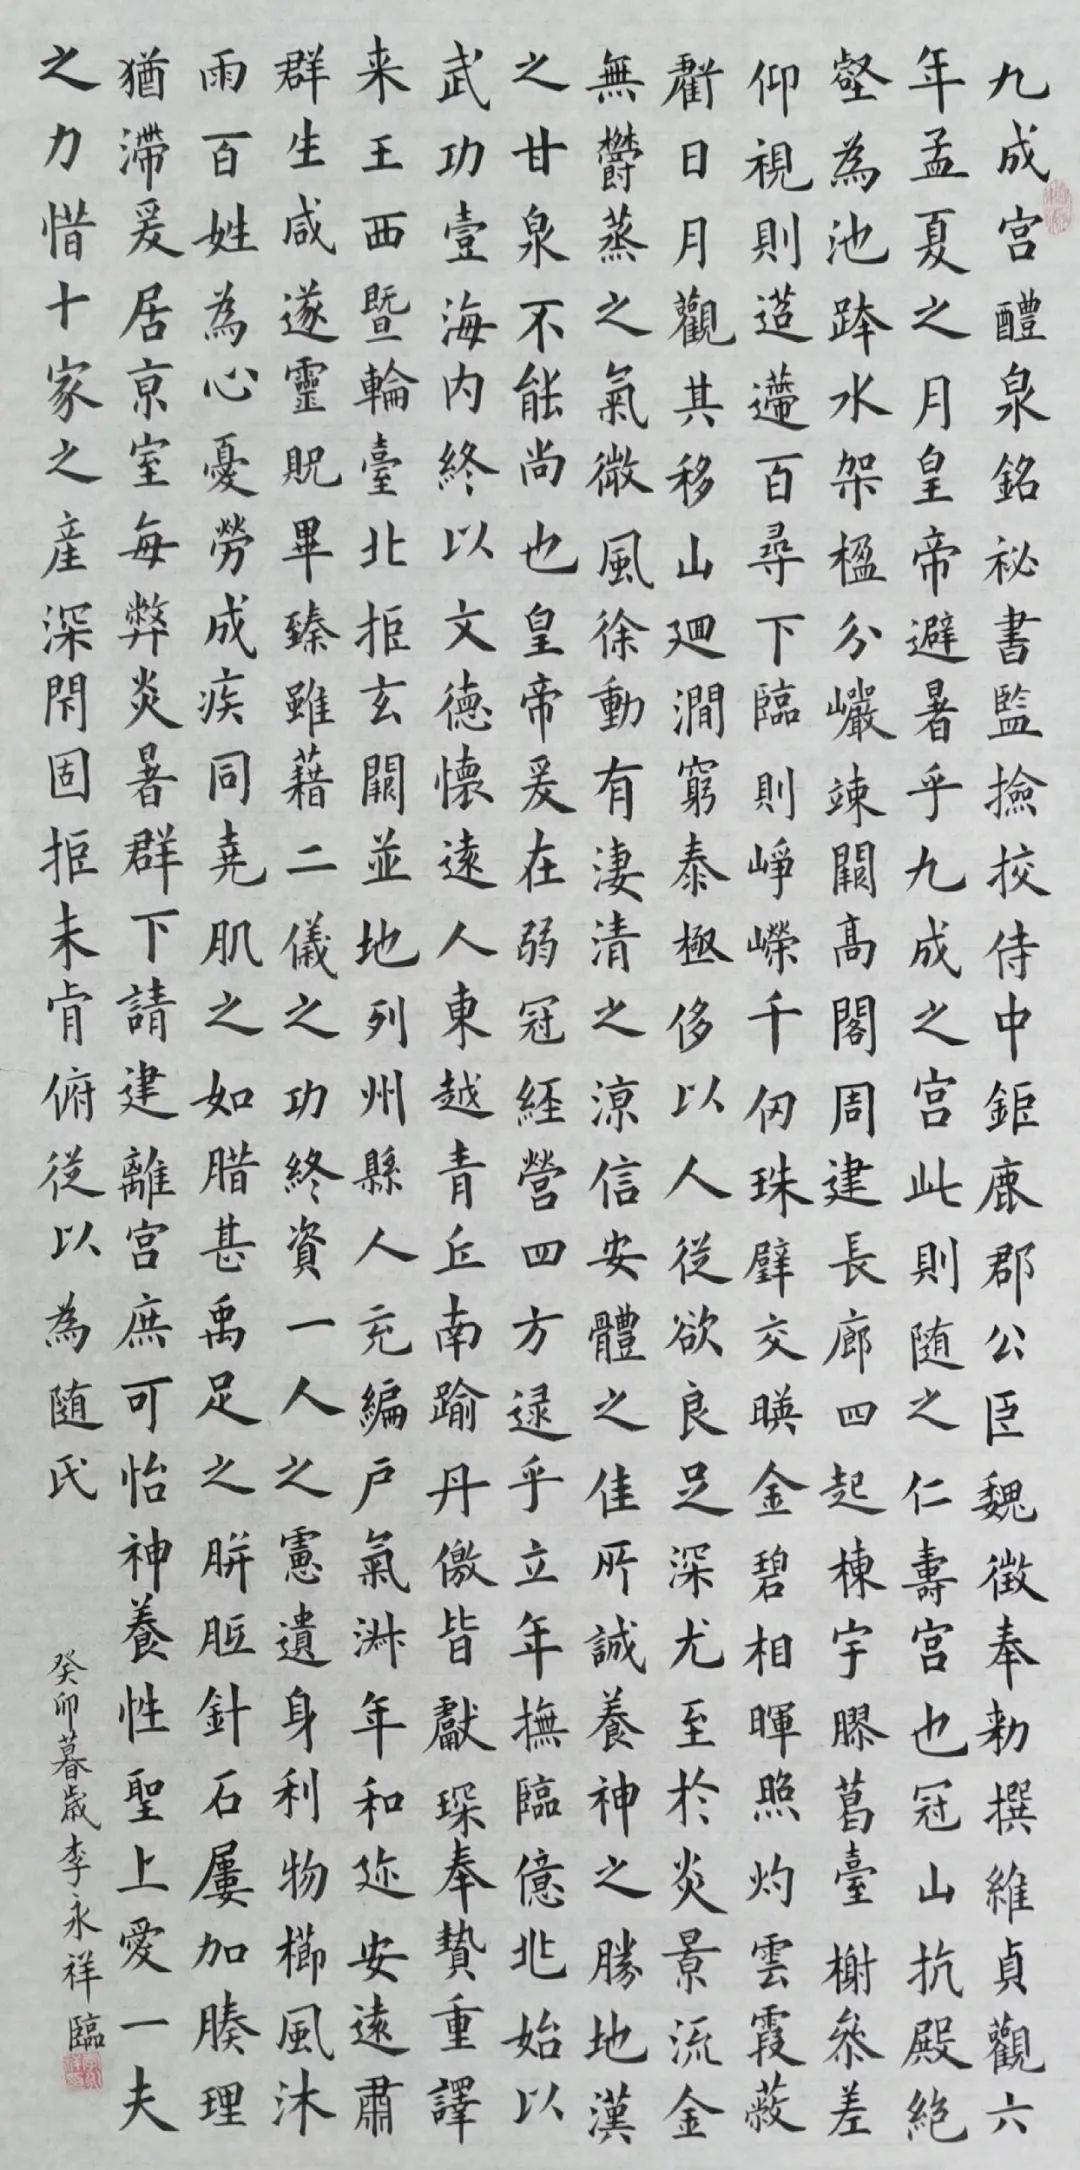 九成宮醴泉銘祕書監撿挍侍中鉅鹿郡公臣魏徵奉勅撰維貞觀六
年孟夏之月皇帝避暑乎九成之宮此則随之仁壽宮也冠山抗殿絶
壑為池跨水架楹分巖竦闕高閣周建長廊四起棟宇膠葛臺榭叅差
仰視則迢遰百尋下臨則崢嶸千仞珠璧交暎金碧相暉照灼雲霞蔽
虧日月觀其移山迴澗窮泰極侈以人從欲良足深尤至於炎景流金
無欝蒸之氣微風徐動有淒清之涼信安體之佳所誠養神之勝地漢
之甘泉不能尚也皇帝爰在弱冠經營四方逯乎立年撫臨億兆始以
武功壹海內終以文德懷遠人東越青丘南踰丹儌皆獻琛奉贄重譯
来王西暨輪臺北拒玄闕並地列州縣人充編戶氣淑年和迩安遠肅
群生咸遂靈貺畢臻雖藉二儀之功終資一人之慮遺身利物櫛風沐
雨百姓為心憂勞成疾同堯肌之如腊甚禹足之胼胝針石屢加腠理
猶滯爰居京室每弊炎暑群下請建離宮庶可怡神養性聖上愛一夫
之力惜十家之產深閇固拒未肯俯從以為随氏
癸卯暮歲李永祥臨